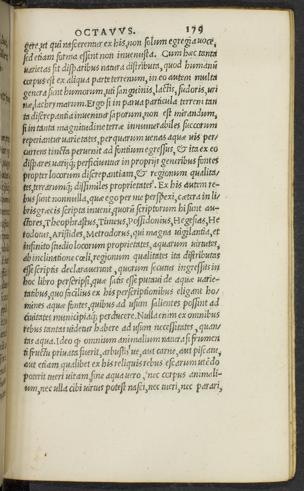 OCTAVVS. 179
gere, ut qui nascerentur ex his, non solum egregia uoce,
sed etiam forma essent non inuenusta. Cum hæc tanta
uarietas sit disparibus natura distributa, quod humanũ
corpus est ex aliqua parte terrenum, in eo autem multa
genera sunt humorum, uti sanguinis, lactis, sudoris, uri
næ, lachrymarum. Ergo si in parua particula terreni tan
ta discrepantia inuenitur saporum, non est mirandum,
si in tanta magnitudine terræ innumerabiles succorum
reperiantur uarietates, per quarum uenas aquæ uis per-
currens tincta peruenit ad fontium egressus, & ita ex eo
dispares uarijq; perficiuntur in proprijs generibus fontes
propter locorum discrepantiam, & regionum qualita-
tes, terrarumq; dissimiles proprietates. Ex his autem re-
bus sunt nonnulla, quæ ego per me perspexi, cætera in li-
bris græcis scripta inueni, quorũ scriptorum hi sunt au-
ctores, Theophrastus, Timæus, Possidonius, Hegesias, He
rodotus, Aristides, Metrodorus, qui magna uigilantia, et
infinito studio locorum proprietates, aquarum uirtutes,
ab inclinatione cœli, regionum qualitates ita distributas
esse scriptis declarauerunt, quorum secutus ingressus in
hoc libro perscripsi, quæ satis esse putaui de aquæ uarie-
tatibus, quo facilius ex his perscriptionibus eligant ho-
mines aquæ fontes, quibus ad usum salientes possint ad
ciuitates municipiaq; perducere. Nulla enim ex omnibus
rebus tantas uidetur habere ad usum necessitates, quan-
tas aqua. Ideo q; omnium animalium natura si frumen
ti fructu priuata fuerit, arbustisue, aut carne, aut piscatu,
aut etiam qualibet ex his reliquis rebus escarum utẽdo
poterit tueri uitam, sine aqua uero, nec corpus animali-
um, nec ulla cibi uirtus potest nasci, nec tueri, nec parari,